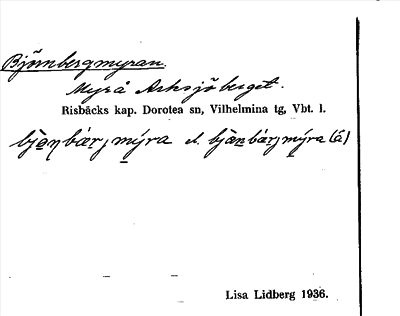 Björnbergmyran.
Myrå Arksjöberget.
Risbäcks kap. Dorotea sn, Vilhelmina tg, Vbt. l.
bjäṇbár̤, mýra el. bjäṇbár̤, mýra (á)
Lisa Lidberg 1936.